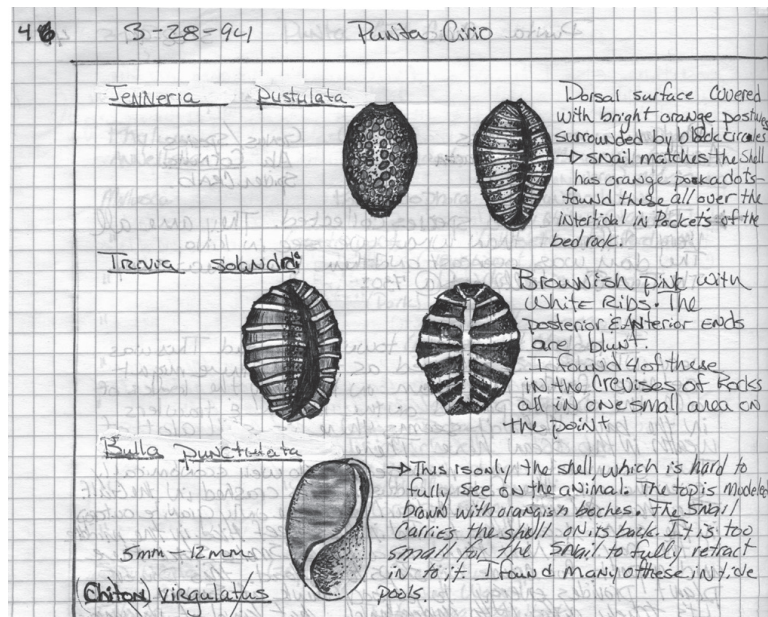 46 3-28-94 Punta Cirio
Jenneria pustulata
Dorsal surface covered
with bright orange postules
surrounded by black circles
→ snail matches the shell
has orange polkadots-
found these all over the
intertidal in Pockets of the
bed rock.
Trivia solandri
Brownish pink with
White Ribs. The
posterior & Anterior ends
are blunt.
I found 4 of these
in the crevises of Rocks
all in one small area on
the point
Bulla punctulata
→ This is only the shell, which is hard to
fully see on the animal. The top is
brown with orangish boches. the snail
Carries the shell on its back. It is too
small for the snail to fully retract
in to it. I found many of these in tide
pools.
5mm - 12mm
(Chiton) virgulatus